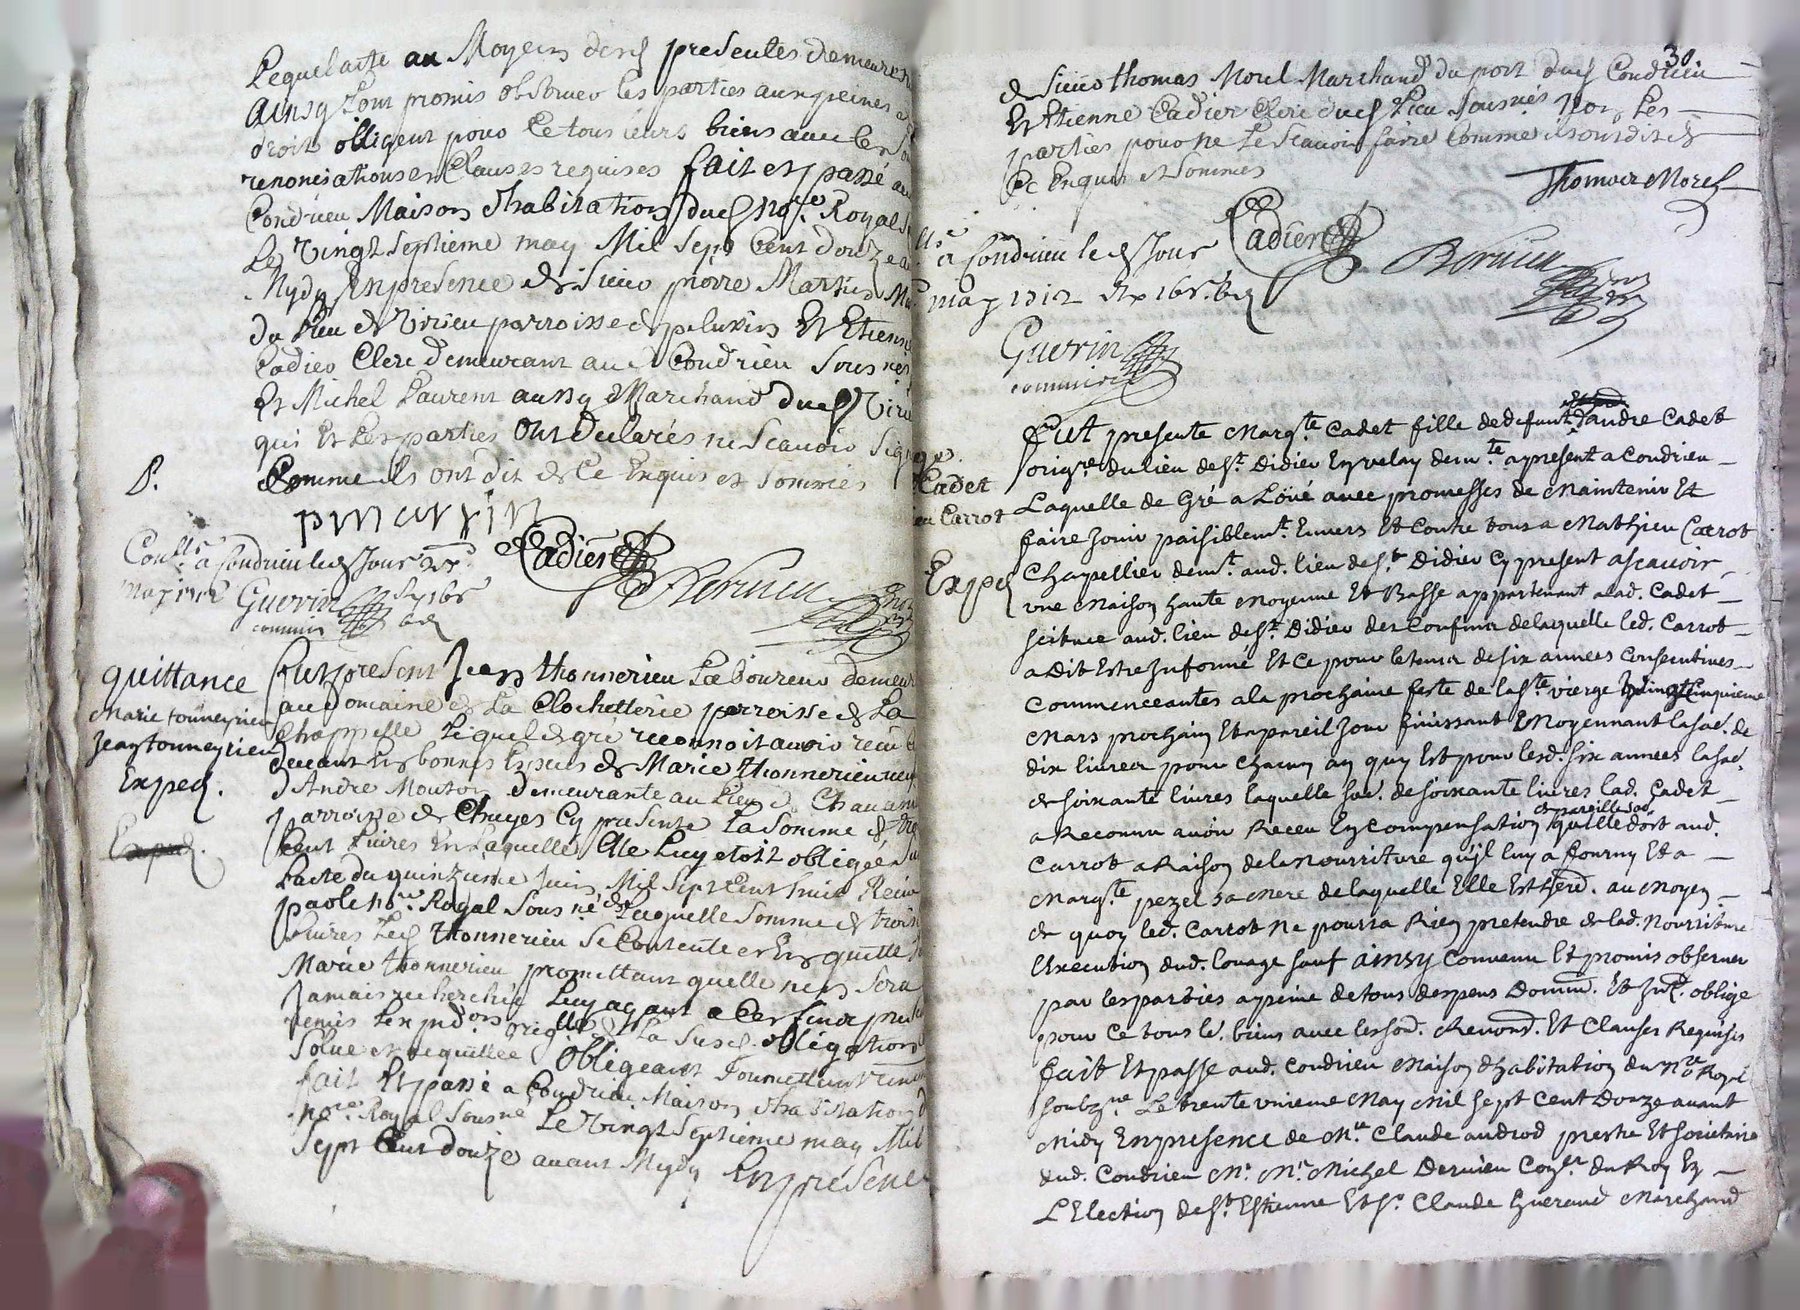 Lequel acte au Moyen desd presentes demeurer
Ainsy Lont promis observer les parties aux peines
droit obligent pour Ce tous leurs biens avec les
renonciations et Clauses requises fait et passé au
Condrieu Maison d'habitation dud No.re Royal
Le Vingt Septieme may Mil Sept Cent Douze
Mydy En presence de Sieur pierre Martin
du Lieu de Virieu parroisse de pelussin Et Etienne
Cadier Clerc demeurant aud Condrieu Sousnés
Et Michel Laurent aussy Marchand dud Virieu
qui Et Les parties Ont Declarés ne Scavoir Signer
Comme ils ont dit de Ce Enquis et Sommés
P.
pmartin
Cadier
Con.lle a Condrieu led Jour 27
may 1712
Guerin
commis
quittance
Marie tonneyrieu
Jean tonneyrieu
Exped.
fut present Jean thonnerieu Laboureur demeur
au Domaine de La Clochetterie parroisse de La
Chappelle Lequel de gré reconnoit avoir receu
devant En bonnes Especes de Marie thonnerieu
d'Andre Mouton demeurante au Lieu de Chavan
parroisse de Chuyes Cy presente La Somme de
Cent Livres En Laquelle Elle Luy etoit obligée
Lacte du quinzieme Juin Mil Sept Cent huit Receu
par le No.re Royal Sous né de Laquelle Somme de trois
Livres Led thonnerieu Se Contente et En quitte
Marie thonnerieu promettant quelle nen Sera
Jamais recherchée Luy ayant a Ces fins
remis Lexpedon orig.lle de La Susd. obligation
Solue et aquittée Obligeant
fait Et passé a Condrieu Maison d'habitation
No.re Royal Sousné Le Vingt Septieme may Mil
Sept Cent douze avant Mydy En presence
30.
de Sieur thomas Morel Marchand du port dud Condrieu
Et Etienne Cadier Clerc dud Lieu Sousnés Non Les
parties pour ne Le Scavoir faire Comme ils ont dit de
Ce Enquis et Sommes
Thomas Morel
Cadier
a Condrieu led Jour
may 1712
Guerin
commis
Cadet
Carrot
Exped
fut presente Marg.te Cadet fille de defunt d'andre Cadet
orig.re du lieu de St. Didier En velay dem.te apresent a Condrieu
Laquelle de Gré a Loüé avec promesses de Maintenir Et
faire Jouir paisiblem.t Envers Et Contre tous a Mathieu Carrot
Chapellier dem.t aud. lieu de St. Didier Cy present ascavoir
vne Maison haute Moyenne Et Basse appartenant alad. Cadet
scituée aud. lieu de St. Didier des Confins de laquelle led. Carrot
a Dit Estre Informé Et Ce pour le tems de six années Consecutives
Commenceantes a la prochaine feste de la Ste. vierge vingt Cinquieme
Mars prochain Et a pareil Jour finissant Moyennant la so.e. de
dix livres pour Chacun an quy Est pour lesd. six années la so.e.
de soixante livres laquelle so.e. de soixante livres lad. Cadet
a Reconnu avoir Receu En Compensation de pareille so.e. qu'elle doit aud.
Carrot a Raison de la Nourriture qu'il luy a fourny Et a
Marg.te pezel sa Mere de laquelle Elle Est herd. au Moyen
de quoy led. Carrot Ne pourra Rien pretendre de lad. Nourriture
L'Execution dud. louage sauf ainsy Convenu Et promis observer
par les parties a peine de tous despens Domm. Et Int. oblige
pour Ce tous le. biens avec les so. Renon. Et Clauses Requises
fait Et passe aud. Condrieu Maison d'habitation du N.re Royal
soubz.ne Le trente vnieme May Mil sept Cent Douze avant
Midy En presence de M.re Claude androd prestre Et societaire
dud. Condrieu M. M.re Michel Dervieu Con.er du Roy En
L'Election de St. Estienne Et Sr. Claude Gueraud Marchand